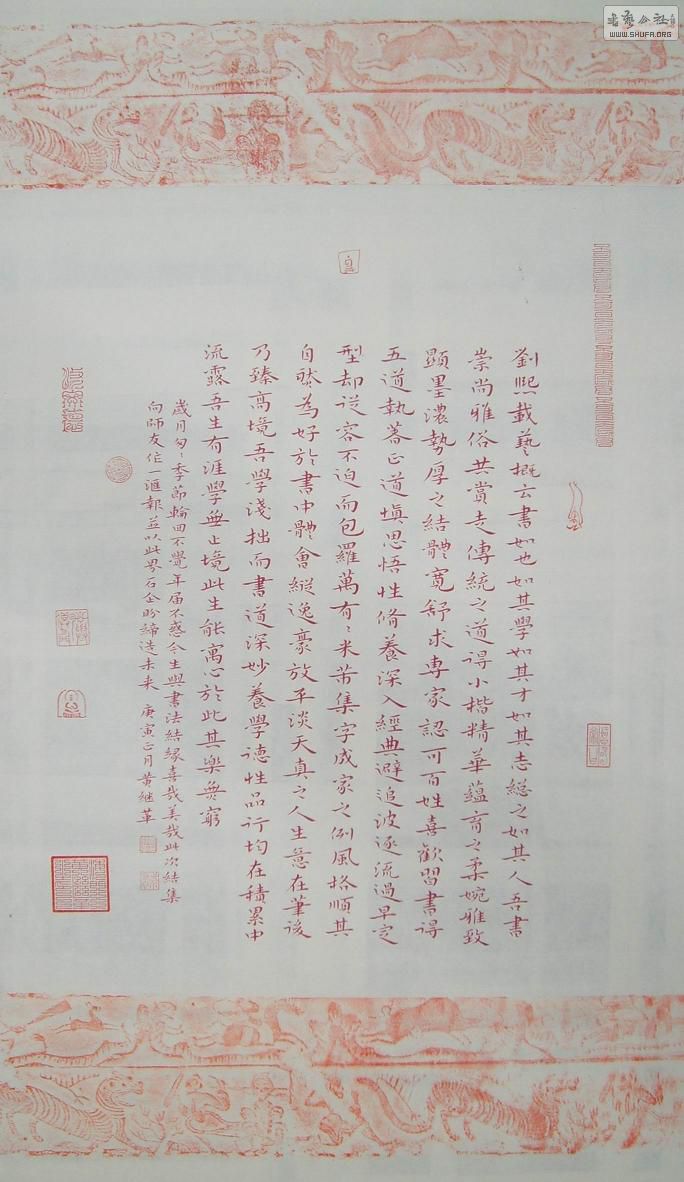 劉熙載藝概云書如也如其學如其才如其志總之如其人吾書
崇尚雅俗共賞走傳統之道得小楷精華蘊育之柔婉雅致
顯墨濃勢厚之結體寬舒求專家認可百姓喜歡習書得
五道執着正道填思悟性脩養深入經典避追波逐流過早定
型却從容不迫而包羅萬有米芾集字成家之例風格順其
自然為好於書中體會縱逸豪放平淡天真之人生意在筆後
乃臻高境吾學淺拙而書道深妙養學德性品行均在積累中
流露吾生有涯學無止境此生能寓心於此其樂無窮
歲月匆〻季節輪回不覺年届不惑今生與書法結緣喜哉美哉此次結集
向師友作一滙報並以此界石企盼締造未来 庚寅正月黄继革
書藝公社
WWW.SHUFA.ORG